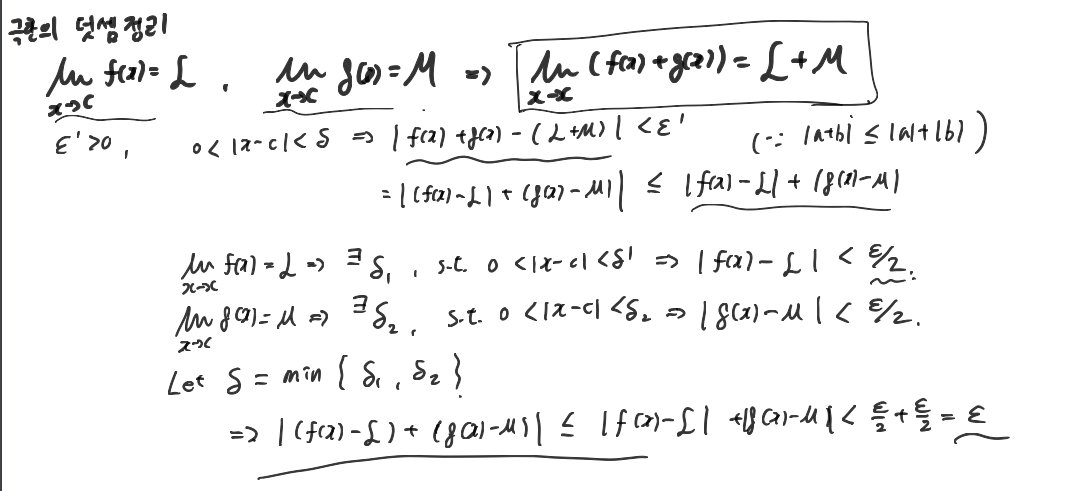 극한의 덧셈정리
lim x→c f(x) = L , lim x→c g(x) = M => lim x→c (f(x) + g(x)) = L + M
ε' > 0 , 0 < |x-c| < δ => | f(x) + g(x) - (L+M) | < ε' (∵ |a+b| ≤ |a|+|b| )
= | (f(x)-L) + (g(x)-M) | ≤ |f(x)-L| + |g(x)-M|
lim x→c f(x) = L => ∃ δ₁ , s.t. 0 < |x-c| < δ' => | f(x) - L | < ε/2.
lim x→c g(x) = M => ∃ δ₂ , s.t. 0 < |x-c| < δ₂ => | g(x) - M | < ε/2.
Let δ = min { δ₁ , δ₂ }
=> | (f(x)-L) + (g(x)-M) | ≤ | f(x)-L | + |g(x)-M| < ε/2 + ε/2 = ε